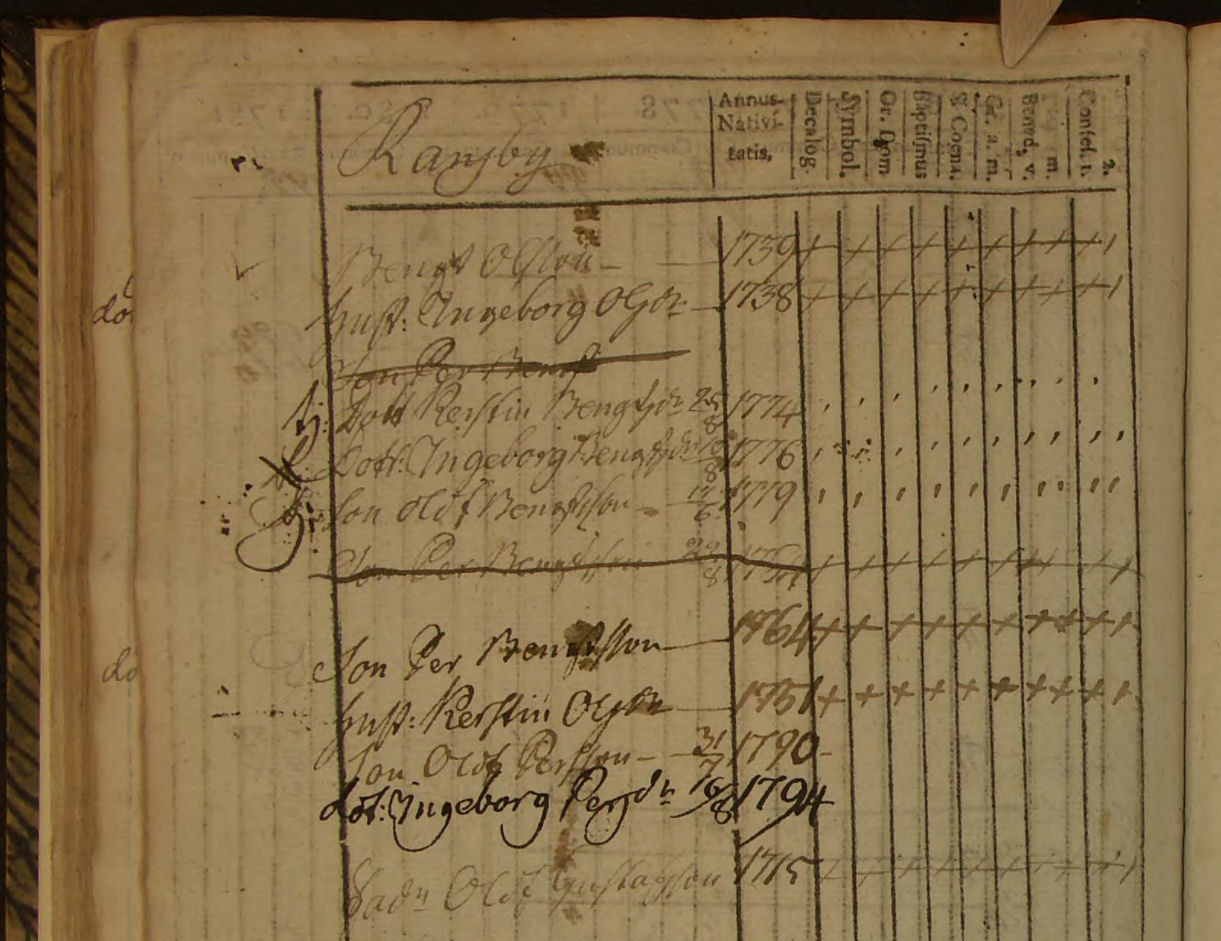 Ransby
Annus Nativitatis,
Decalog.
Symbol.
Or. Dom
Baptismus
S. Coena.
Gr. a. m.
Bened. v. m.
Confes. 1. 2.
Bengt Olsson - 1739
hust: Ingeborg Olsdr 1738
Son Per Bengts
Dott Kerstin Bengtsdr 25/8 1774
Dott: Ingeborg Bengtsdr 1776
Son Olof Bengtsson - 1779
Son Per Bengtsson 29/8 1764
Son Per Bengtsson 1764
hust: Kerstin Olsdr 1751
Son Olof Persson - 31/7 1790
dot: Ingeborg Persdr 16/8 1794
Olof Gustafsson 1715
do
do